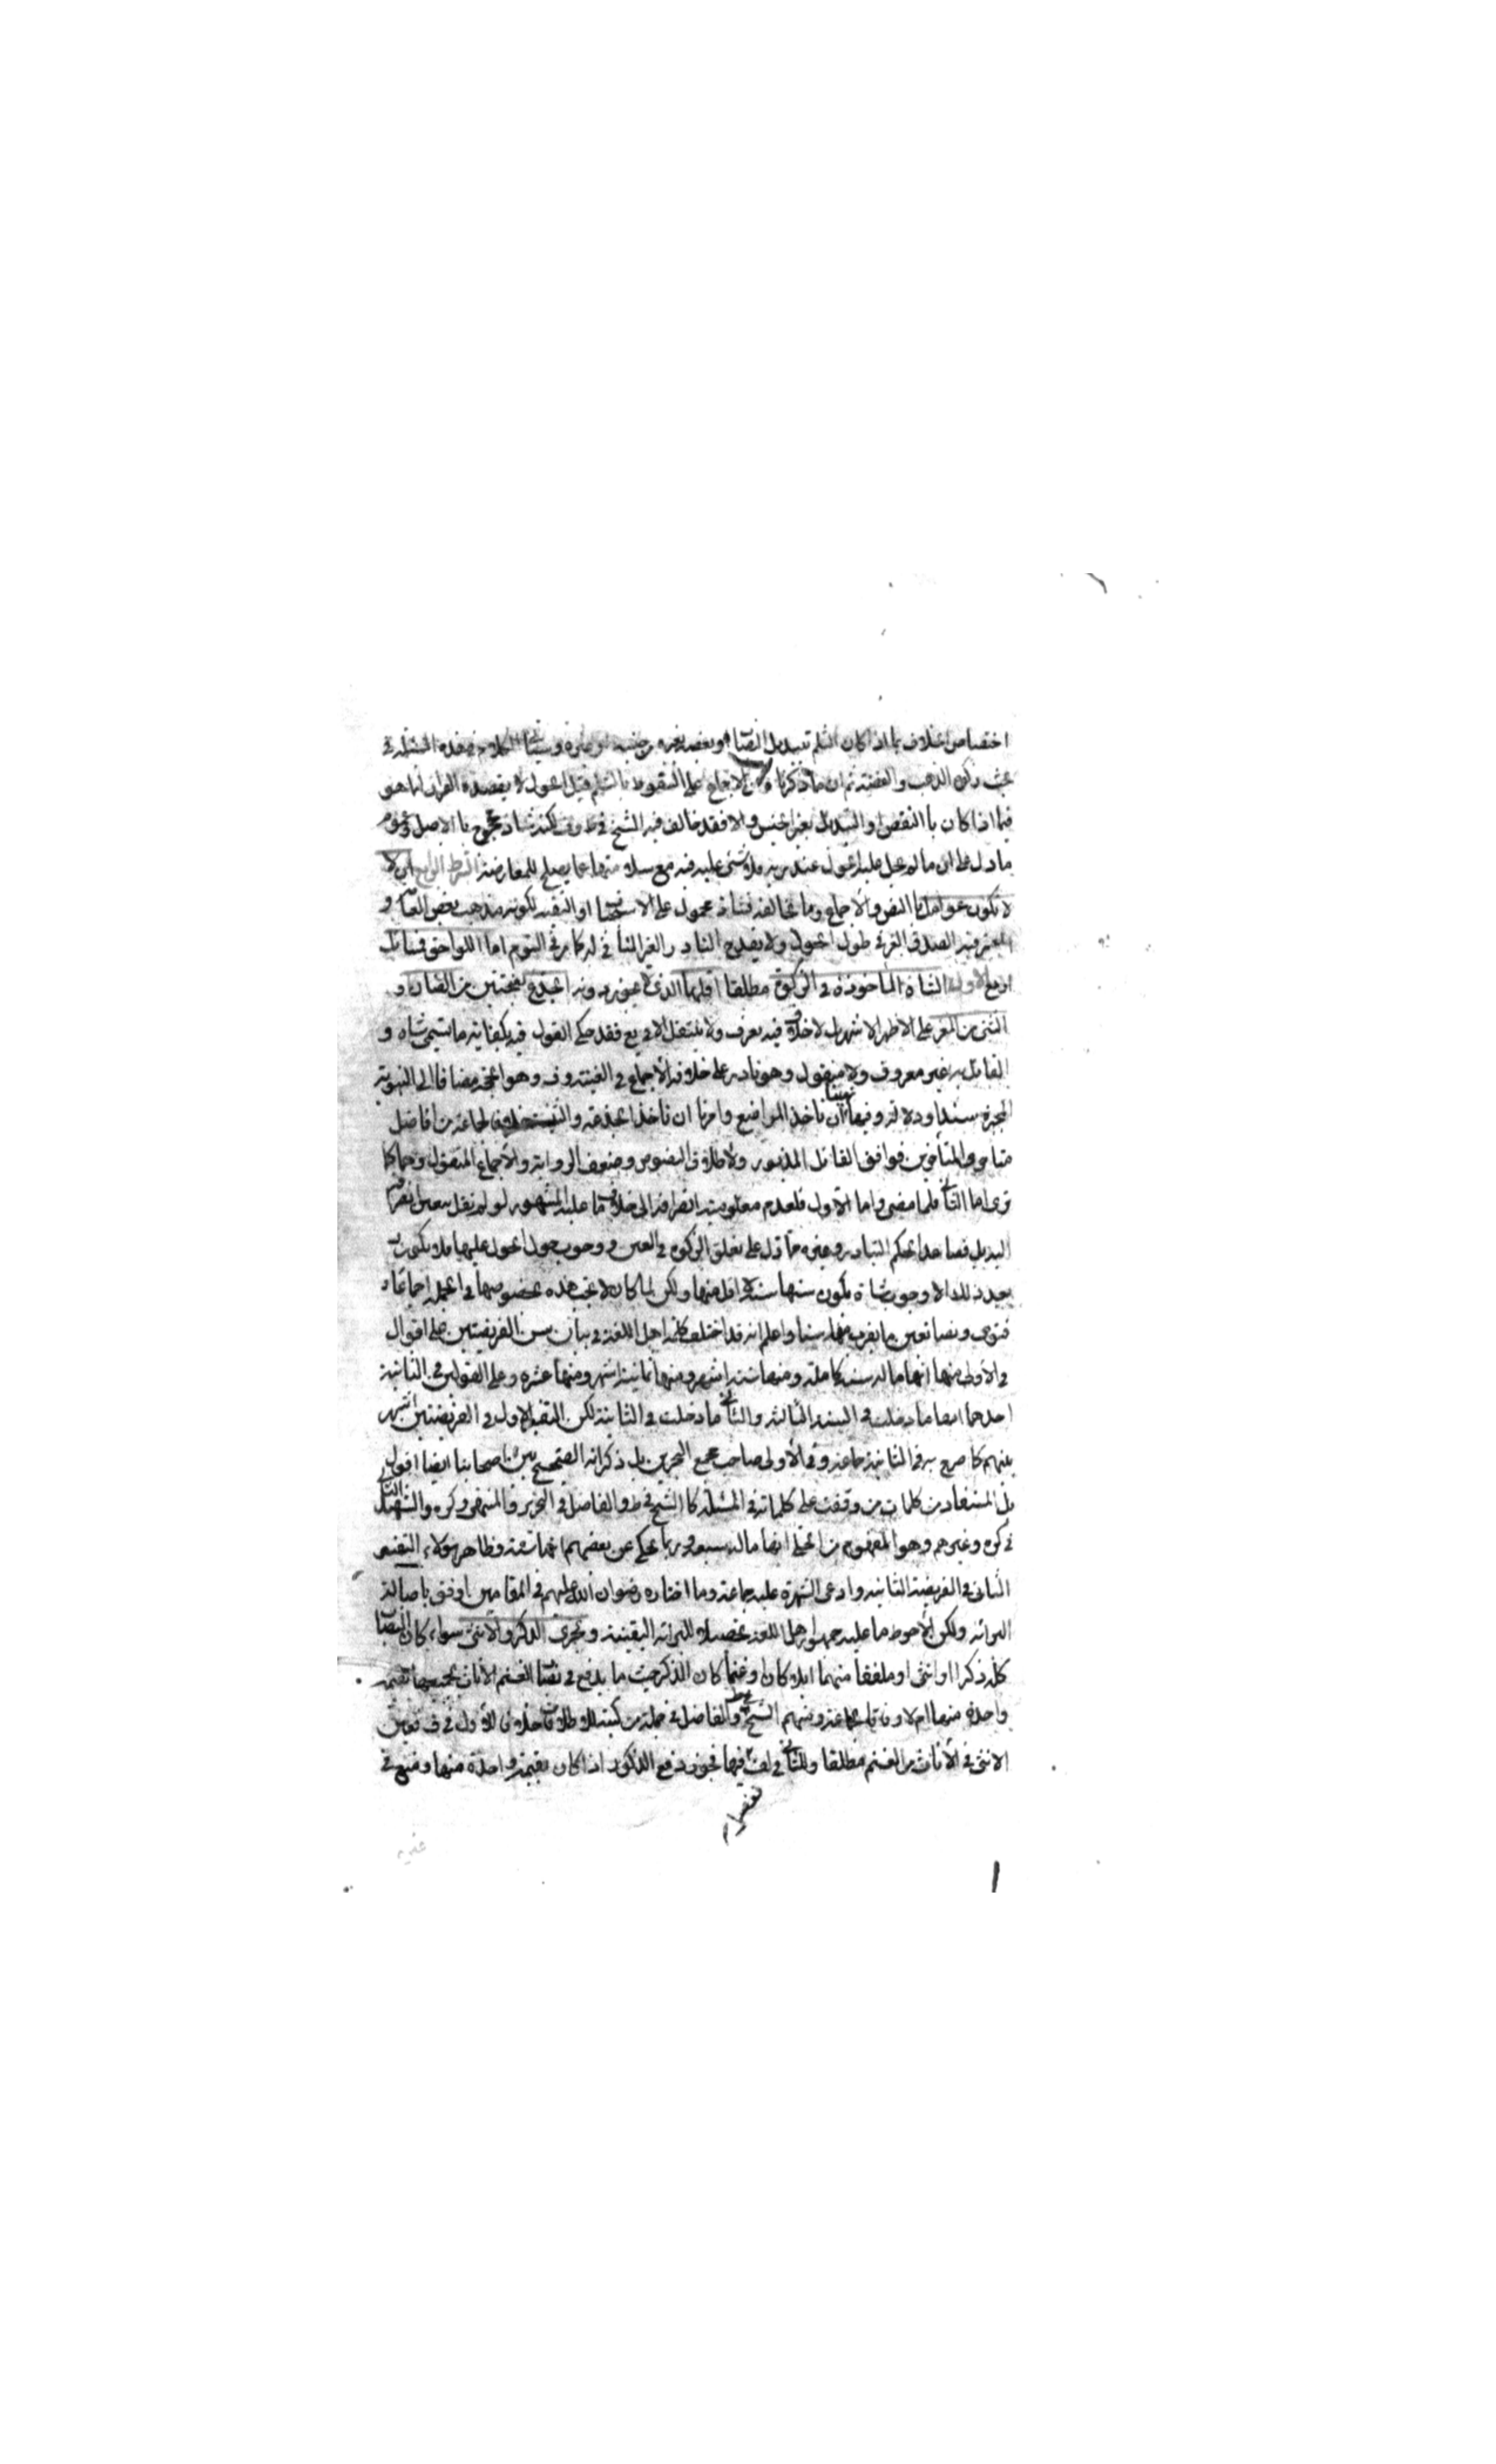 اختصاص الخلاف بما اذا كان الثلم تبديل النصاب او بعضه بغيره من جنسه او غيره وسيأتي الكلام في هذه المسئلة في
بحث زكوة الذهب والفضة ثم ان ما ذكرنا من الاجماع على السقوط بالثلم قبل الحول لا بقصد الفرار انما هو
فيما اذا كان بالنقص او التبديل بغير الجنس والا فقد خالف فيه الشيخ في ط وف لكنه شاذ محجوج بالاصل وعموم
ما دل على ان ما لم يحل عليه الحول عند ربه فلا شئ عليه فيه مع سلامتهما عما يصلح للمعارضة الشرط الرابع ان لا
لا تكون عوامل بالنص والاجماع وما خالفه فشاذ محمول على الاستحباب او التقية لكونه مذهب بعض العامة و
المعتبر فيه الصدق العرفي طول الحول ولا يقدح النادر الغير المنافي له كما مر في السوم اما اللواحق فمسائل
اربع الاولى الشاة المأخوذة في الزكوة مطلقا اقلها الذي لا يجوز دونه الجذع بفتحتين من الضان و
الثنى من المعز على الاظهر الاشهر بل لا خلاف فيه يعرف ولا ينتقل الا في يع فقد حكى القول فيه بكفاية ما تسمى شاة و
القائل به غير معروف ولا منقول وهو نادر على خلافه الاجماع في الغنية وف وهو الحجة مضافا الى النبوية
المجبرة سندا ودلالة وفيها نهينا ان ناخذ المراضع وامرنا ان ناخذ الجذعة والثنية خلافا لجماعة من افاضل
متاخري المتأخرين فوافقوا القائل المذبور ولاطلاق النصوص وضعف الرواية والاجماع المنقول وهما كما
ترى اما الثاني فلما مضى واما الاول فلعدم معلومية انصرافه الى خلاف ما عليه المشهور لو لم نقل بتعين انصرافه
اليه بل فصاعدا بحكم التبادر وغيره مما دل على تعلق الزكوة في العين ووجوب حول الحول عليها فلا يكون
بعد ذلك الا وجوب شاة يكون سنها سنة لا اقل منها ولكن لما كان لا تجب هذه بخصوصها في الجملة اجماعا و
فتوى ونصا تعين ما يقرب منها سنا واعلم انه قد اختلف كلمة اهل اللغة في بيان سن الفريضتين على اقوال
في الاولى منها انها ما له سنة كاملة ومنها ستة اشهر ومنها ثمانية اشهر ومنها عشرة وعلى القولين في الثانية
احدهما انها ما دخلت في السنة الثالثة والثاني ما دخلت في الثانية لكن التفسير الاول في الفريضتين اشهر
بينهم كما صرح به في الثانية جماعة وفي الاولى صاحب مجمع البحرين بل ذكر انه الصحيح بين اصحابنا ايضا اقول
بل المستفاد من كلمات من وقفت على كلماته في المسئلة كالشيخ في ط والفاضل في التحرير والمنتهى وكره والشهيد الثاني
في كره وغيرهم وهو المفهوم من الحلي انها ما له سبعة وربما حكى عن بعضهم انها ستة وظاهر هؤلاء التفسير
الثاني في الفريضة الثانية وادعى الشهرة عليه جماعة وما اختاره رضوان الله عليهم في المقامين اوفق باصالة
البرائة ولكن الاحوط ما عليه جمهور اهل اللغة تحصيلا للبرائة اليقينية ويجزى الذكر والانثى سواء كان النصاب
كله ذكرا او انثى او ملفقا منهما ابلا كان او غنما كان الذكر حيث ما يدفع في نصاب الغنم الاناث بجميعها بقيمة
واحدة منها ام لا وفاقا لجماعة ومنهم الشيخ في ط والفاضل في جملة من كتبه للاطلاق خلافا للاول في ف فعين
الانثى في الاناث من الغنم مطلقا وللثاني في لف فيها فجوز دفع الذكور اذا كان بقيمة واحدة منها ومنع في